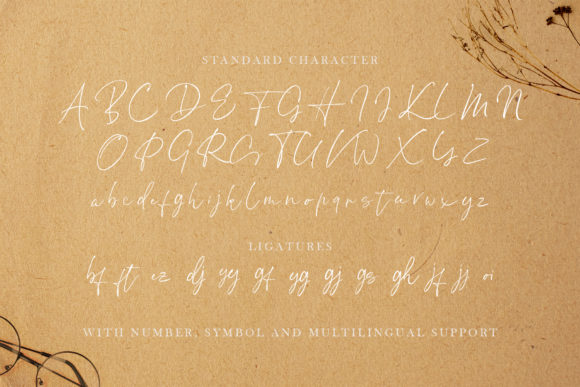 STANDARD CHARACTER
A B C D E F G H I J K L M N
O P Q R S T U V W X Y Z
a b c d e f g h i j k l m n o p q r s t u v w x y z
LIGATURES
bf ft ez dj yy gf yg gj gs gh jf jj oi
WITH NUMBER, SYMBOL AND MULTILINGUAL SUPPORT